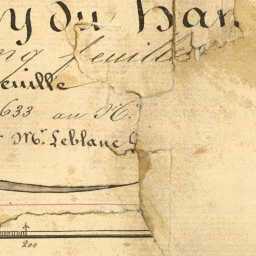 y du Han
feuille
euille
633 au N.
Mr. Leblanc
200